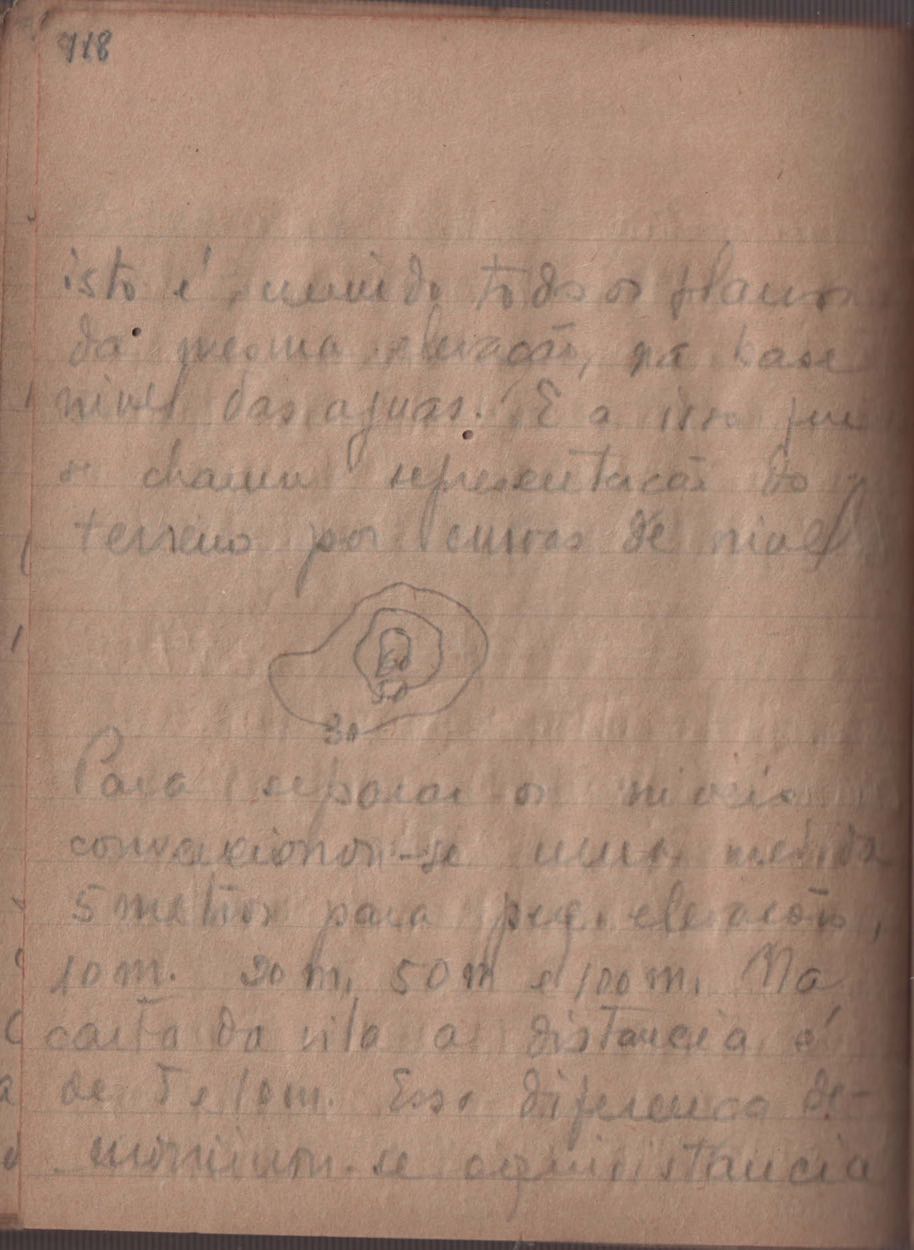 718
isto é, reunindo todos os planos
da mesma elevação, na base
nivel das aguas. E a isso que
se chama representacão do
terreno por curvas de nivel
60
50
30
Para separar os niveis
convencionou-se uma medida
5 metros para peq. elevacões,
10m. 20m, 50m e 100m. Na
carta da vila a distancia é
de 5 e 10m. Essa diferença de-
nominou-se equidistancia